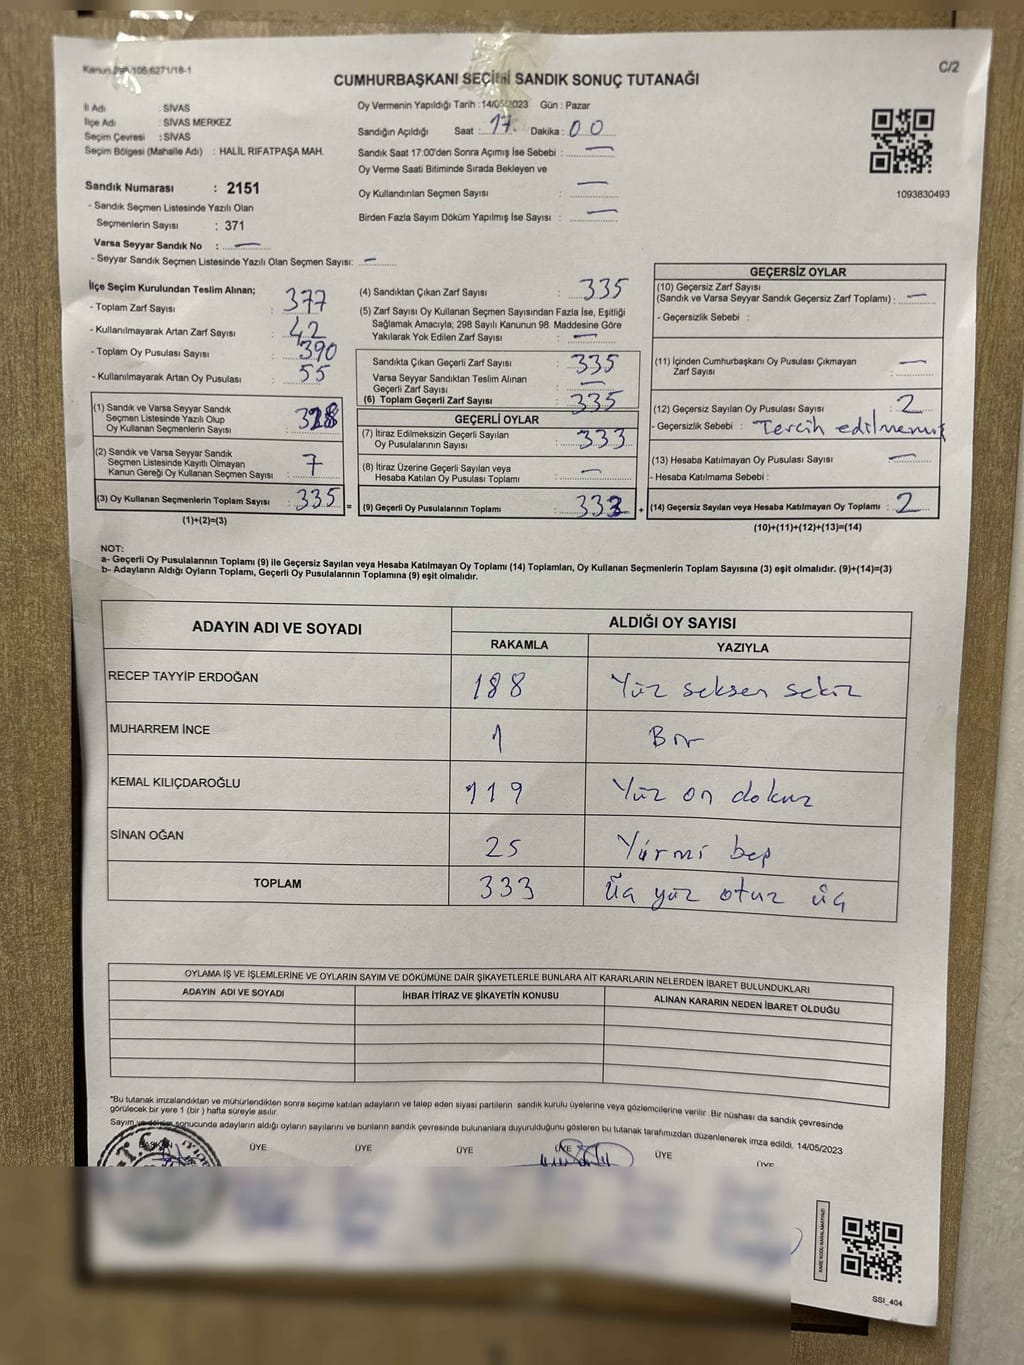 C/2
CUMHURBAŞKANI SEÇİMİ SANDIK SONUÇ TUTANAĞI
İl Adı : SİVAS
İlçe Adı : SİVAS MERKEZ
Seçim Çevresi : SİVAS
Seçim Bölgesi (Mahalle Adı) : HALİL RIFATPAŞA MAH.
Sandık Numarası : 2151
- Sandık Seçmen Listesinde Yazılı Olan
Seçmenlerin Sayısı : 371
Varsa Seyyar Sandık No : —
- Seyyar Sandık Seçmen Listesinde Yazılı Olan Seçmen Sayısı: —
Oy Vermenin Yapıldığı Tarih : 14/05/2023 Gün : Pazar
Sandığın Açıldığı Saat : 17. Dakika : 00
Sandık Saat 17:00'den Sonra Açımış İse Sebebi : —
Oy Verme Saati Bitiminde Sırada Bekleyen ve
Oy Kullandırılan Seçmen Sayısı : —
Birden Fazla Sayım Döküm Yapılmış İse Sayısı : —
1093830493
İlçe Seçim Kurulundan Teslim Alınan;
- Toplam Zarf Sayısı : 377
- Kullanılmayarak Artan Zarf Sayısı : 42
- Toplam Oy Pusulası Sayısı : 390
- Kullanılmayarak Artan Oy Pusulası : 55
(1) Sandık ve Varsa Seyyar Sandık
Seçmen Listesinde Yazılı Olup
Oy Kullanan Seçmenlerin Sayısı : 328
(2) Sandık ve Varsa Seyyar Sandık
Seçmen Listesinde Kayıtlı Olmayan
Kanun Gereği Oy Kullanan Seçmen Sayısı : 7
(3) Oy Kullanan Seçmenlerin Toplam Sayısı : 335 =
(1)+(2)=(3)
(4) Sandıktan Çıkan Zarf Sayısı : 335
(5) Zarf Sayısı Oy Kullanan Seçmen Sayısından Fazla İse, Eşitliği
Sağlamak Amacıyla; 298 Sayılı Kanunun 98. Maddesine Göre
Yakılarak Yok Edilen Zarf Sayısı : —
Sandıkta Çıkan Geçerli Zarf Sayısı : 335
Varsa Seyyar Sandıktan Teslim Alınan
Geçerli Zarf Sayısı : —
(6) Toplam Geçerli Zarf Sayısı : 335
GEÇERLİ OYLAR
(7) İtiraz Edilmeksizin Geçerli Sayılan
Oy Pusulalarının Sayısı : 333
(8) İtiraz Üzerine Geçerli Sayılan veya
Hesaba Katılan Oy Pusulası Toplamı : —
(9) Geçerli Oy Pusulalarının Toplamı : 333 +
GEÇERSİZ OYLAR
(10) Geçersiz Zarf Sayısı
(Sandık ve Varsa Seyyar Sandık Geçersiz Zarf Toplamı) : —
- Geçersizlik Sebebi :
(11) İçinden Cumhurbaşkanı Oy Pusulası Çıkmayan
Zarf Sayısı : —
(12) Geçersiz Sayılan Oy Pusulası Sayısı : 2
- Geçersizlik Sebebi : Tercih edilmemiş
(13) Hesaba Katılmayan Oy Pusulası Sayısı : —
- Hesaba Katılmama Sebebi :
(14) Geçersiz Sayılan veya Hesaba Katılmayan Oy Toplamı : 2
(10)+(11)+(12)+(13)=(14)
NOT:
a- Geçerli Oy Pusulalarının Toplamı (9) ile Geçersiz Sayılan veya Hesaba Katılmayan Oy Toplamı (14) Toplamları, Oy Kullanan Seçmenlerin Toplam Sayısına (3) eşit olmalıdır. (9)+(14)=(3)
b- Adayların Aldığı Oyların Toplamı, Geçerli Oy Pusulalarının Toplamına (9) eşit olmalıdır.
ADAYIN ADI VE SOYADI ALDIĞI OY SAYISI
RAKAMLA YAZIYLA
RECEP TAYYİP ERDOĞAN 188 Yüz seksen sekiz
MUHARREM İNCE 1 Bir
KEMAL KILIÇDAROĞLU 119 Yüz on dokuz
SİNAN OĞAN 25 Yirmi beş
TOPLAM 333 Üç yüz otuz üç
OYLAMA İŞ VE İŞLEMLERİNE VE OYLARIN SAYIM VE DÖKÜMÜNE DAİR ŞİKAYETLERLE BUNLARA AİT KARARLARIN NELERDEN İBARET BULUNDUKLARI
ADAYIN ADI VE SOYADI İHBAR İTİRAZ VE ŞİKAYETİN KONUSU ALINAN KARARIN NEDEN İBARET OLDUĞU
*Bu tutanak imzalandıktan ve mühürlendikten sonra seçime katılan adayların ve talep eden siyasi partilerin sandık kurulu üyelerine veya gözlemcilerine verilir. Bir nüshası da sandık çevresinde
görülecek bir yere 1 (bir) hafta süreyle asılır.
Sayım ve döküm sonucunda adayların aldığı oyların sayılarını ve bunların sandık çevresinde bulunanlara duyurulduğunu gösteren bu tutanak tarafımızdan düzenlenerek imza edildi. 14/05/2023
BAŞKAN ÜYE ÜYE ÜYE ÜYE ÜYE ÜYE
T.C.
SSI_404